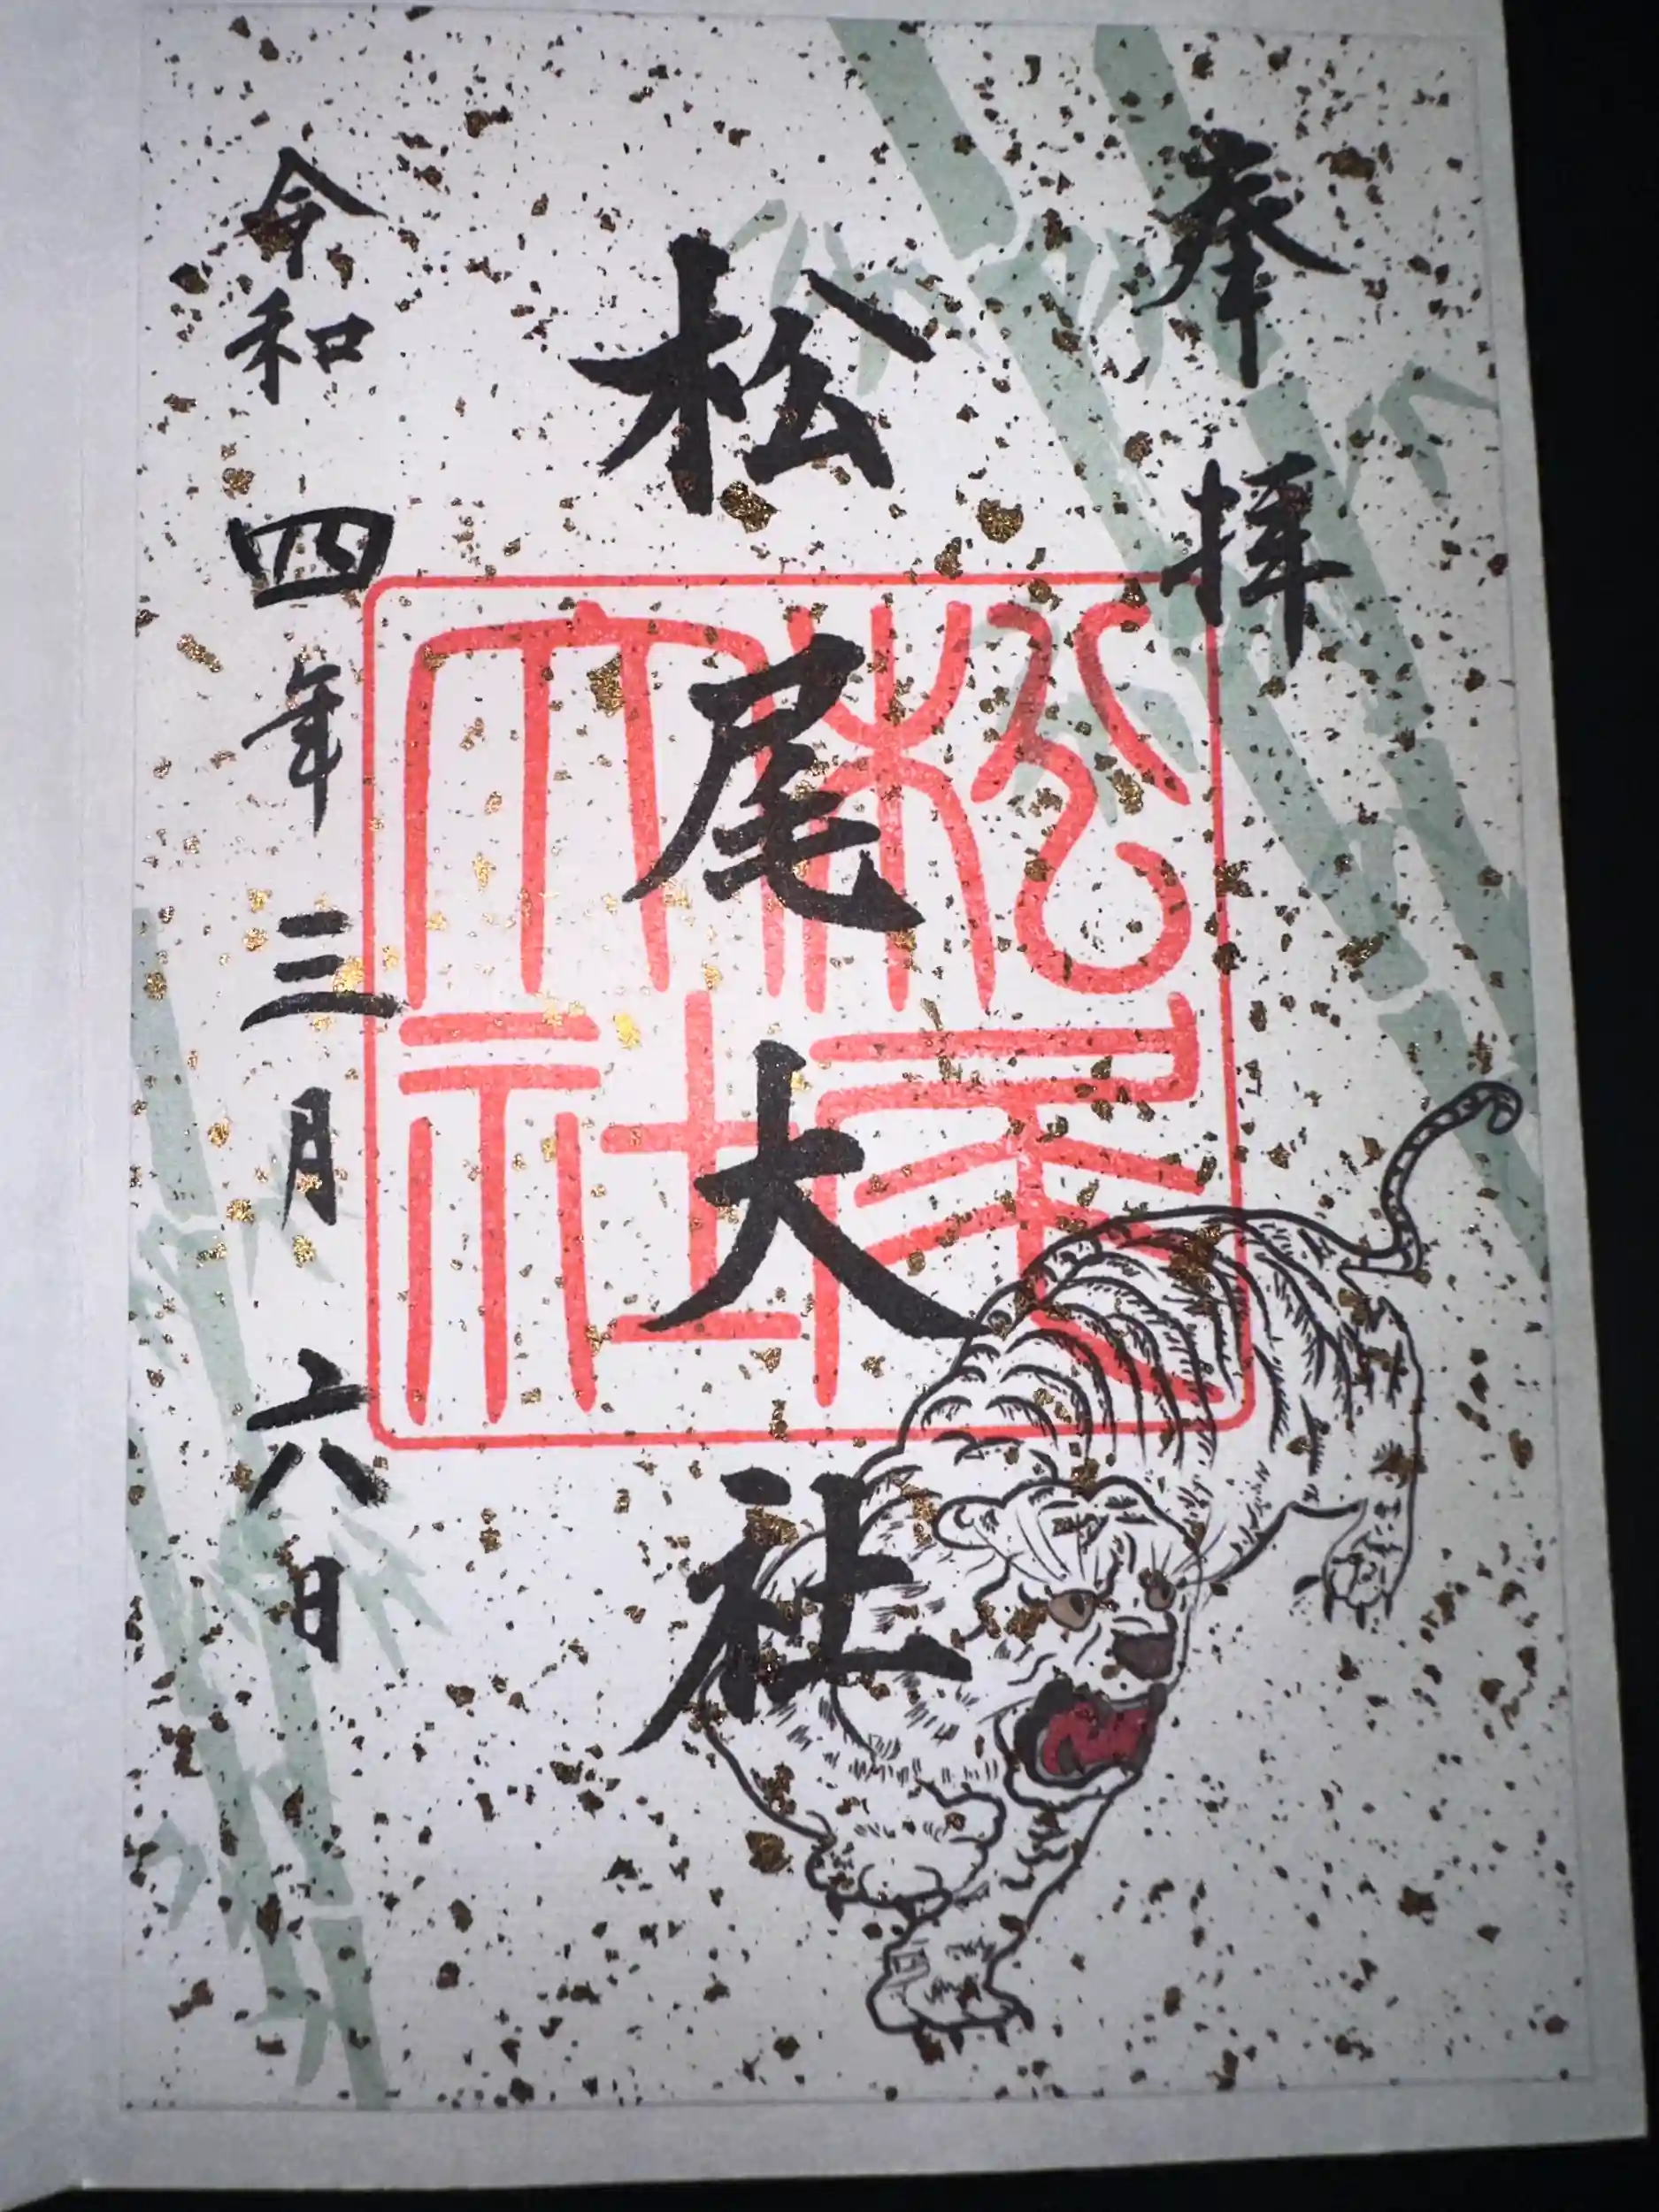 奉拝
松尾大社
松尾大社
令和四年三月六日